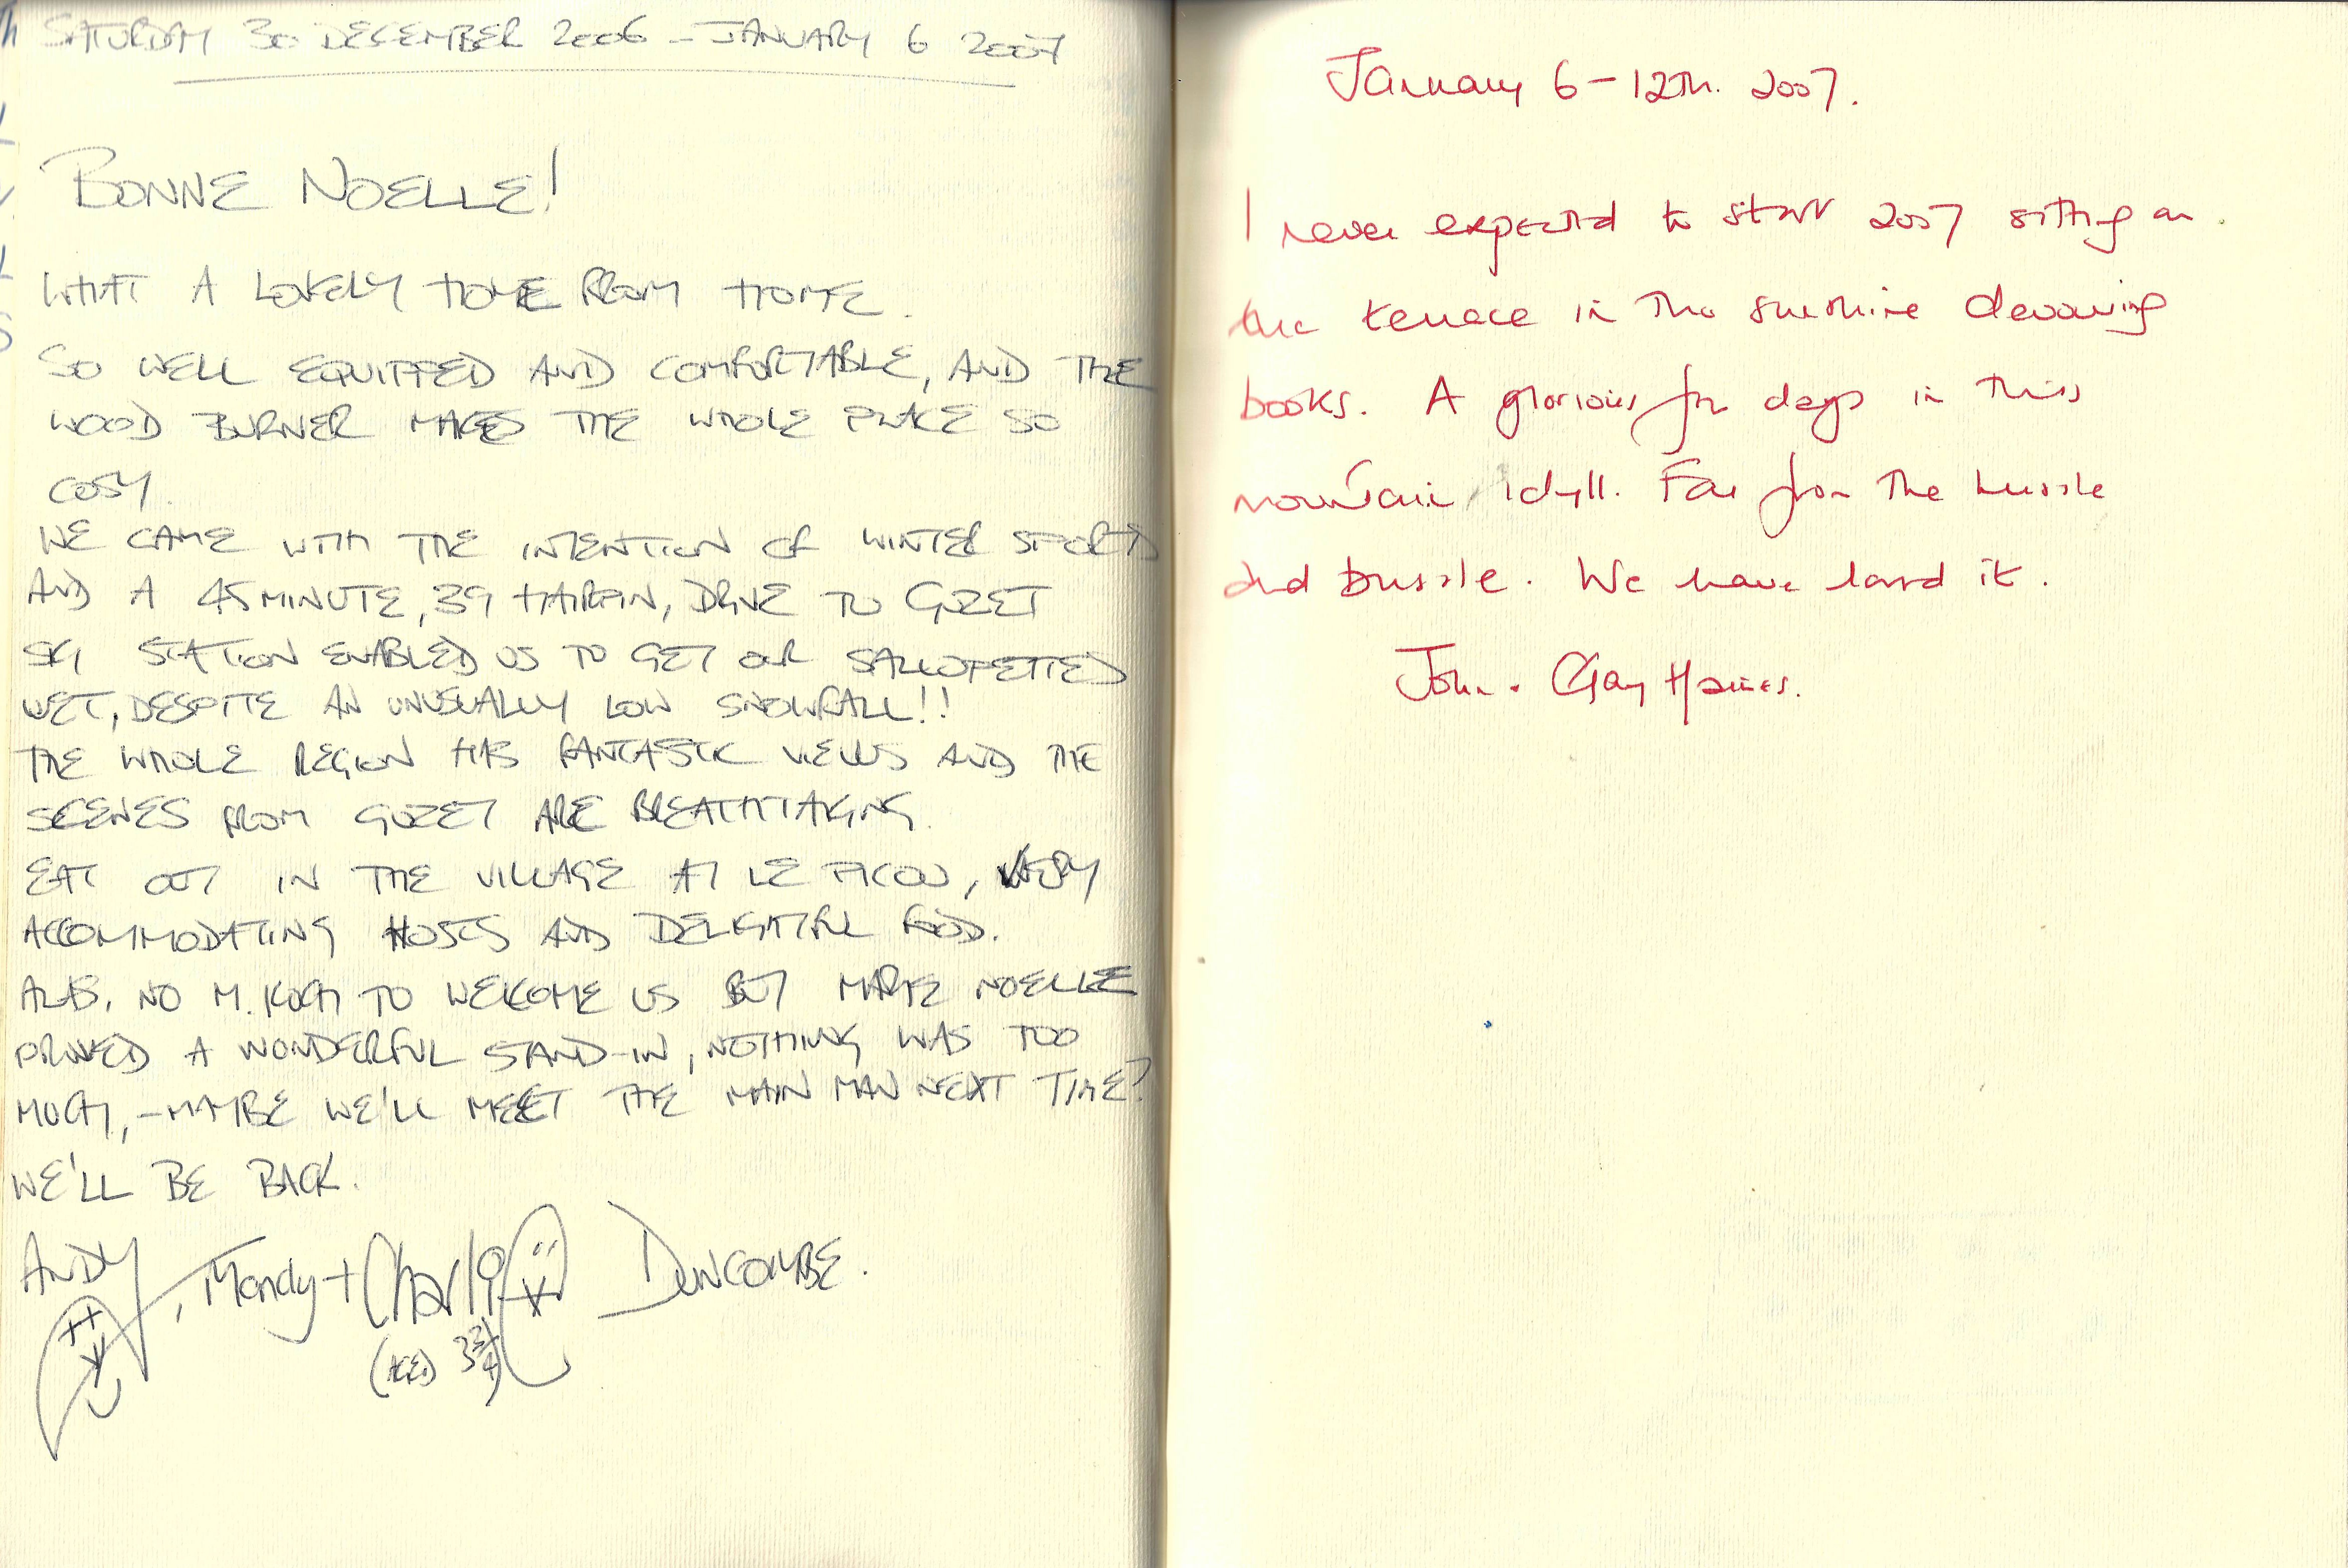 SATURDAY 30 DECEMBER 2006 - JANUARY 6 2007
BONNE NOELLE!
WHAT A LOVELY HOME FROM HOME.
SO WELL EQUIPPED AND COMFORTABLE, AND THE
WOOD BURNER MAKES THE WHOLE PLACE SO
COSY.
WE CAME WITH THE INTENTION OF WINTER SPORTS
AND A 45 MINUTE, 39 HAIRPIN, DRIVE TO GUZET
SKI STATION ENABLED US TO GET OUR SALLOPETTES
WET, DESPITE AN UNUSUALLY LOW SNOWFALL!!
THE WHOLE REGION HAS FANTASTIC VIEWS AND THE
SCENES FROM GUZET ARE BREATHTAKING.
EAT OUT IN THE VILLAGE AT LE PICOU, VERY
ACCOMMODATING HOSTS AND DELIGHTFUL FOOD.
ALAS, NO M. KOCH TO WELCOME US BUT MARIE NOELLE
PROVED A WONDERFUL STAND-IN, NOTHING WAS TOO
MUCH, - MAYBE WE'LL MEET THE MAIN MAN NEXT TIME?
WE'LL BE BACK.
ANDY, Mandy + Charlie DUNCOMBE.
(AGED 3 3/4)
January 6-12th. 2007.
I never expected to start 2007 sitting on
the terrace in the sunshine devouring
books. A glorious few days in this
mountain idyll. Far from the hussle
and bussle. We have loved it.
John + Gay Haines.